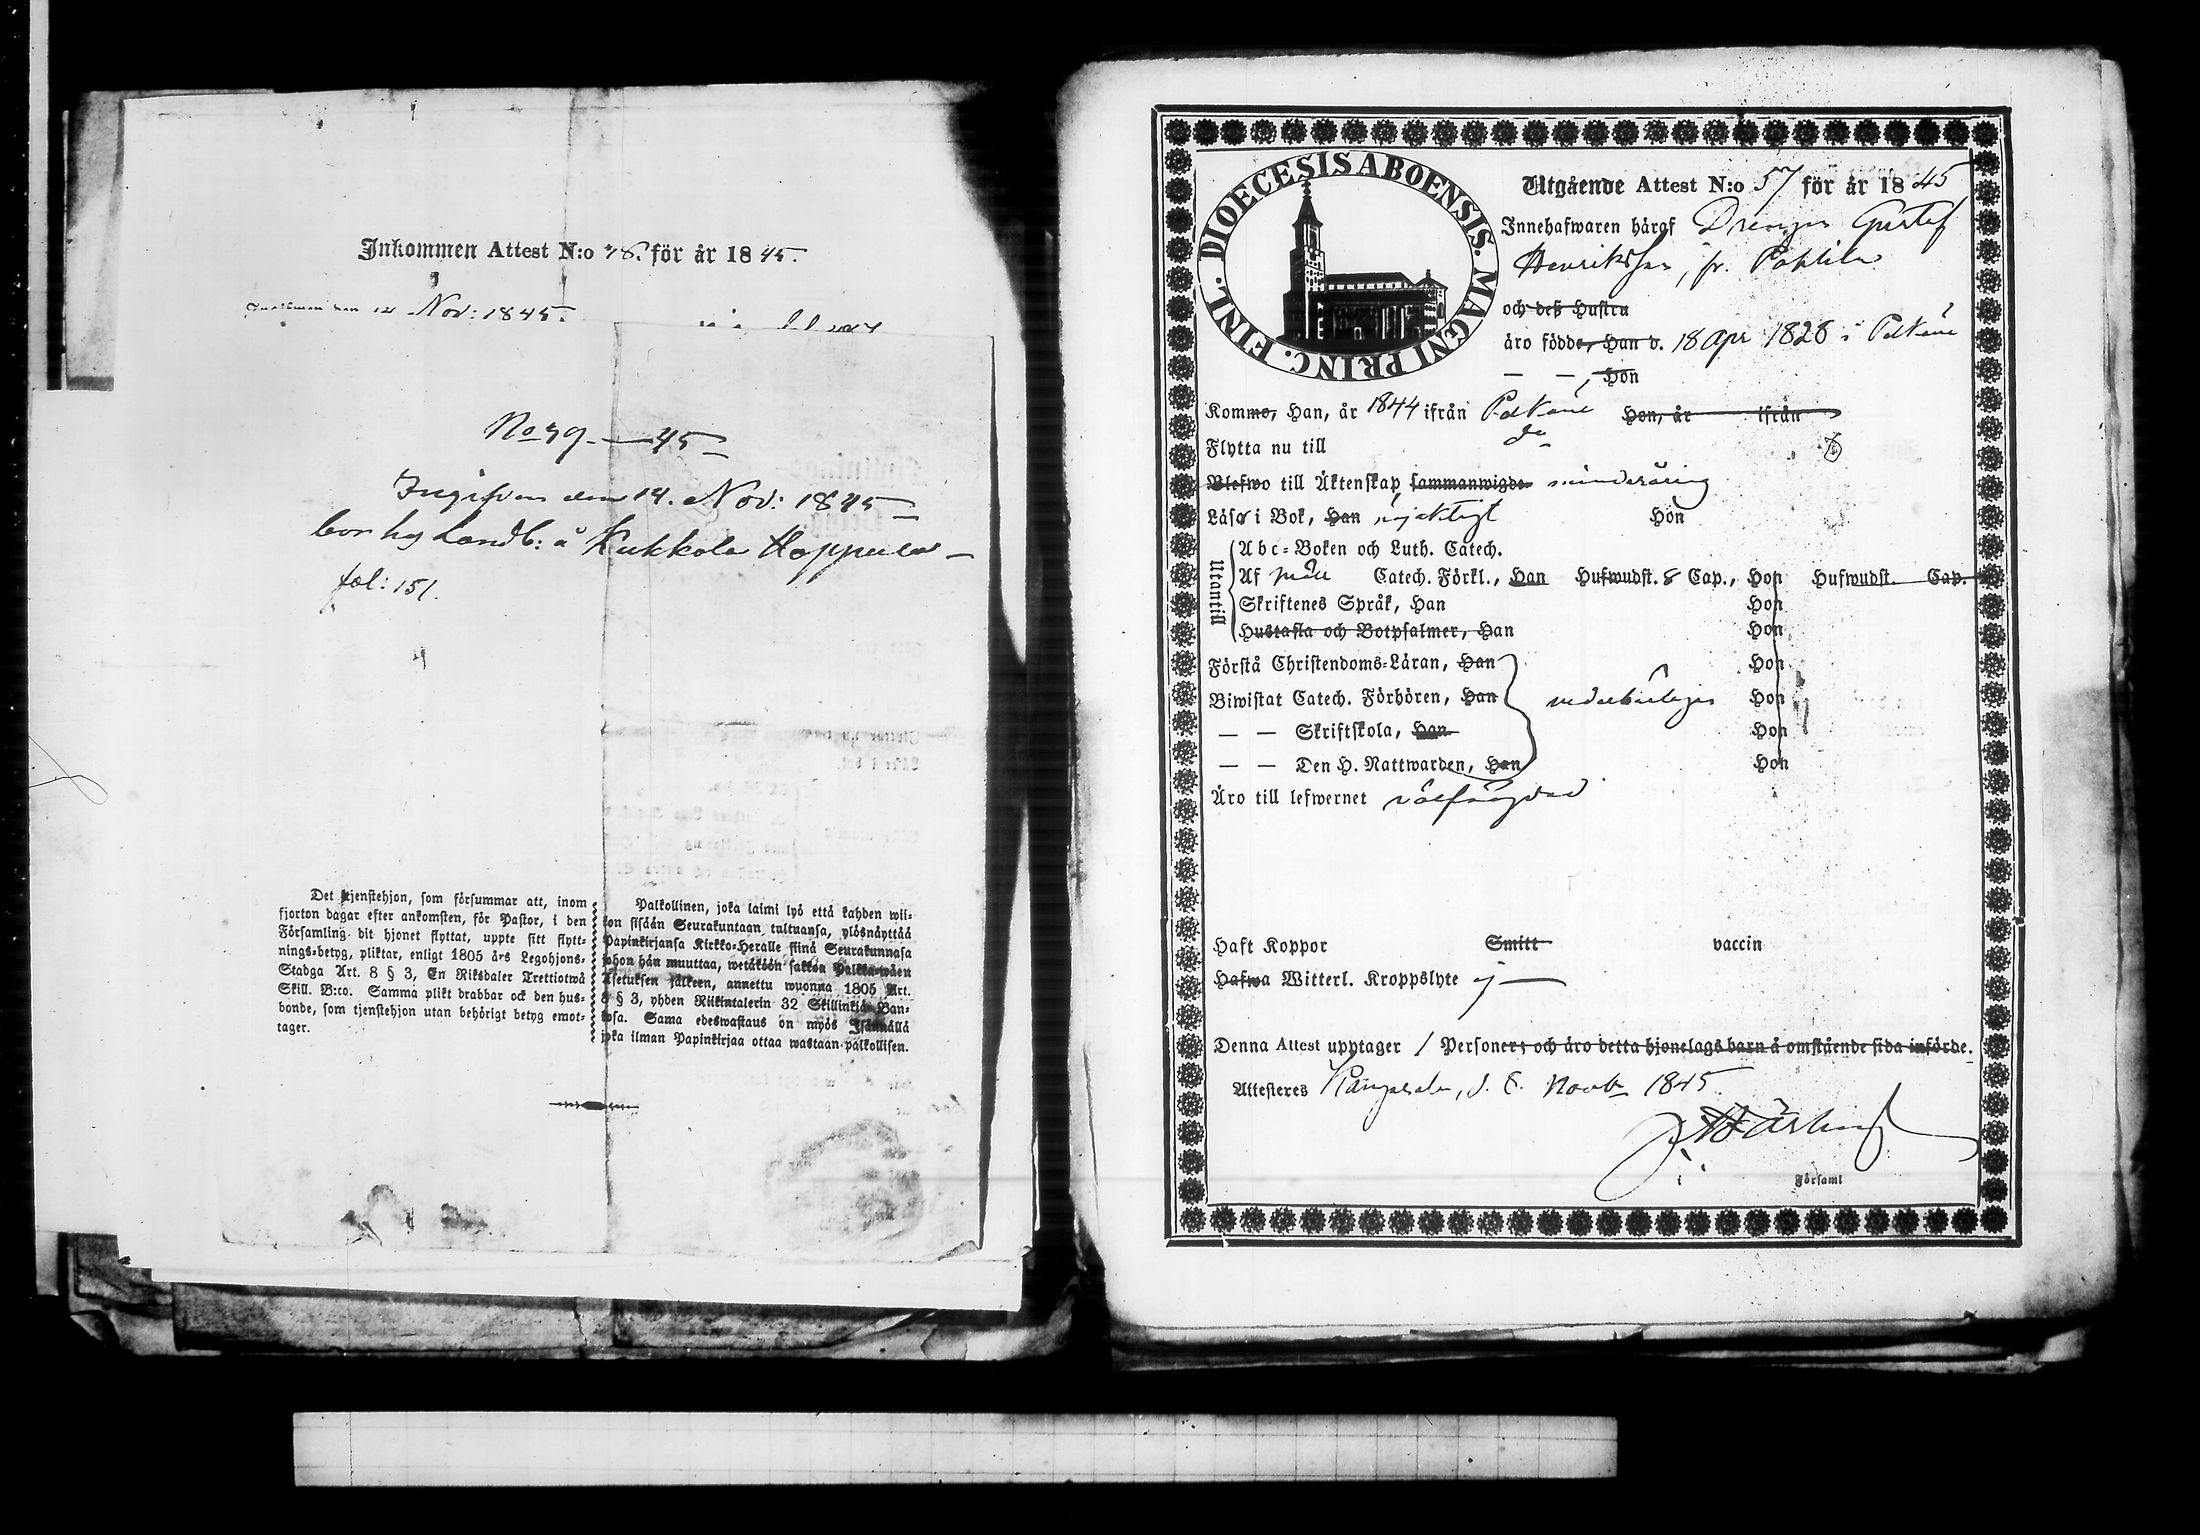 Inkommen Attest N:o 78. för år 1845.
Ingifwen den 14 Nov: 1845.
No 79 — 45
Ingifven den 14. Nov: 1845
bor hos Landb: å Kukkola Hoppula
fol: 151.
Det tjenstehjon, som försummar att, inom
fjorton dagar efter ankomsten, för Pastor, i den
Församling dit hjonet flyttat, uppte sitt flytt-
nings-betyg, pliktar, enligt 1805 års Legohjons-
Stadga Art. 8 § 3, En Riksdaler Trettiotwå
Skill. B:co. Samma plikt drabbar ock den hus-
bonde, som tjenstehjon utan behörigt betyg emot-
tager.
Palkollinen, joka laimi lyö että kahden wii-
kon sisään Seurakuntaan tultuansa, ylösnäyttää
Papinkirjansa Kirkko-Heralle siinä Seurakunnasa
johon hän muuttaa, wetäköön sakkoa Palkka-wäen
Asetuksen jälkeen, annettu wuonna 1805 Art.
8 § 3, yhden Riikintalerin 32 Skillinkiä Ban-
kosa. Sama edeswastaus on myös Isännällä
joka ilman Papinkirjaa ottaa wastaan palkollisen.
DIOECESIS ABOENSIS. MAGNI PRINC. FINL.
Utgående Attest N:o 57 för år 1845
Innehafwaren häraf Drengen Gustaf
Henriksson, fr. Pohtila
och deß Hustru
äro födde, Han d. 18 Apr 1828 i Pelkäne
— —, Hon
Kommo, Han, år 1844 ifrån Pelkäne Hon, år ifrån
Flytta nu till do
Blefwo till Äktenskap sammanwigde minderårig
Läsa i Bok, Han nöjaktigt Hon
Utantill
Abc-Boken och Luth. Catech.
Af Catech. Förkl., Han Hufwudst. 8 Cap., Hon Hufwudst. Cap.
Skriftenes Språk, Han Hon
Hustafla och Botpsalmer, Han Hon
Förstå Christendoms-Läran, Han Hon
Biwistat Catech. Förhören, Han vederbörligen Hon
— — Skriftskola, Han Hon
— — Den H. Nattwarden, Han Hon
Äro till lefwernet välfrägdad
Haft Koppor Smitt vaccin
Hafwa Witterl. Kroppslyte ej
Denna Attest upptager 1 Personer; och äro detta hjonelags barn å omstående sida införde.
Attesteres Kangasala, d. 8. Novb 1845
i Församl